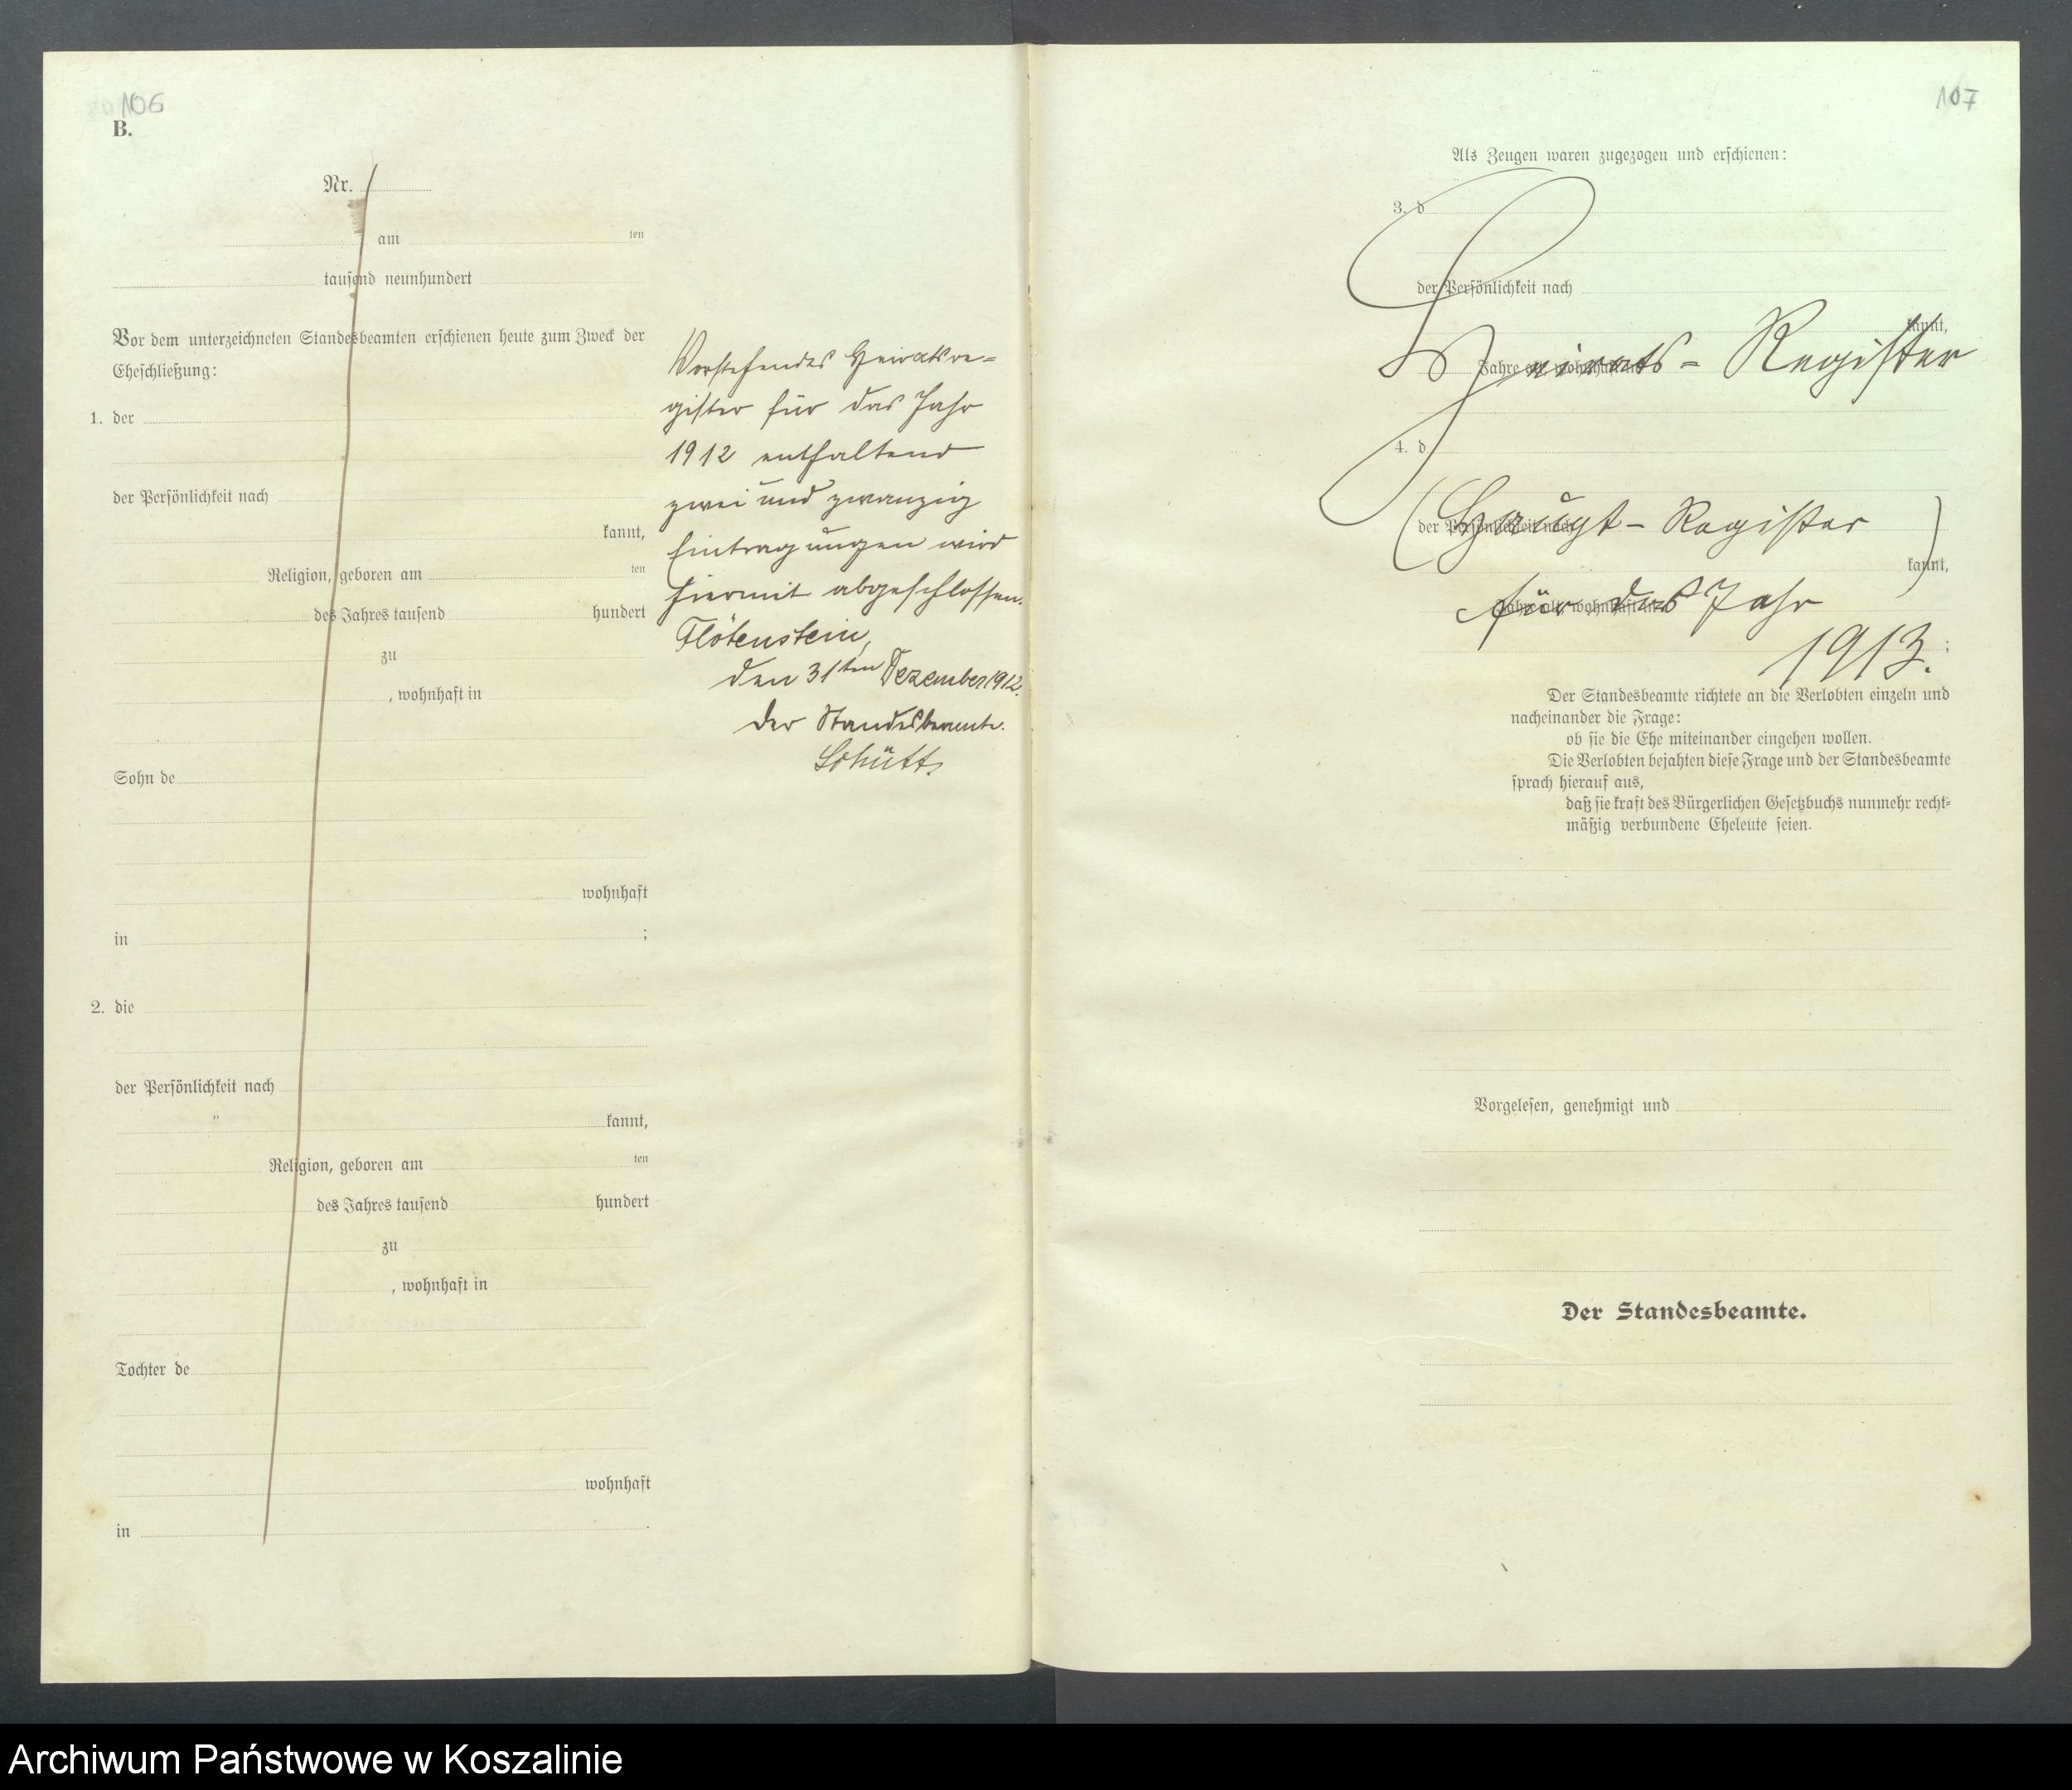 106
B.
Nr.
am ten
tausend neunhundert
Vor dem unterzeichneten Standesbeamten erschienen heute zum Zweck der
Eheschließung:
1. der
der Persönlichkeit nach
kannt,
Religion, geboren am ten
des Jahres tausend hundert
zu
, wohnhaft in
Sohn de
wohnhaft
in ;
2. die
der Persönlichkeit nach
kannt,
Religion, geboren am ten
des Jahres tausend hundert
zu
, wohnhaft in
Tochter de
wohnhaft
in .
Vorstehendes Heiratsre-
gister für das Jahr
1912 enthaltend
zwei und zwanzig
Eintragungen wird
hiermit abgeschlossen.
Flötenstein,
den 31ten Dezember 1912.
Der Standesbeamte.
Schütt
107
Als Zeugen waren zugezogen und erschienen:
3. d
der Persönlichkeit nach
kannt,
Jahre alt, wohnhaft in
Heirats-Register
4. d
(Haupt-Register)
der Persönlichkeit nach
kannt,
Jahre alt, wohnhaft in
für das Jahr
1913.
;
Der Standesbeamte richtete an die Verlobten einzeln und
nacheinander die Frage:
ob sie die Ehe miteinander eingehen wollen.
Die Verlobten bejahten diese Frage und der Standesbeamte
sprach hierauf aus,
daß sie kraft des Bürgerlichen Gesetzbuchs nunmehr recht-
mäßig verbundene Eheleute seien.
Vorgelesen, genehmigt und
Der Standesbeamte.
Archiwum Państwowe w Koszalinie